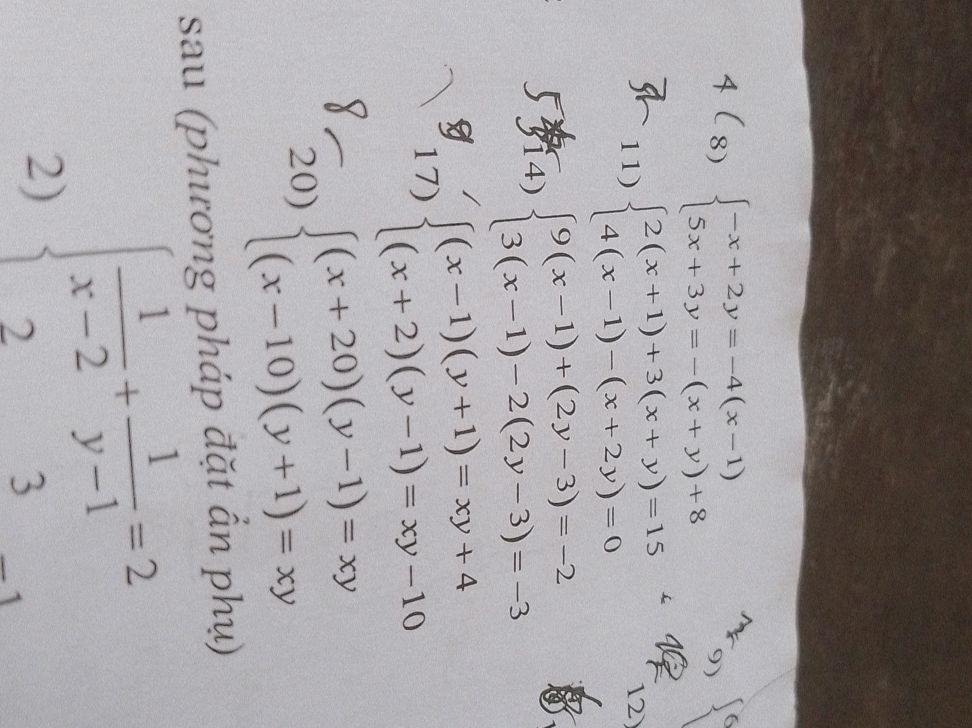 4 ( 8) { -x + 2y = -4(x - 1)
5x + 3y = -(x + y) + 8
9) {
11) { 2(x + 1) + 3(x + y) = 15
4(x - 1) - (x + 2y) = 0
12)
5 14) { 9(x - 1) + (2y - 3) = -2
3(x - 1) - 2(2y - 3) = -3
17) { (x - 1)(y + 1) = xy + 4
(x + 2)(y - 1) = xy - 10
8 20) { (x + 20)(y - 1) = xy
(x - 10)(y + 1) = xy
sau (phương pháp đặt ẩn phụ)
2) { 1/(x - 2) + 1/(y - 1) = 2
2 3